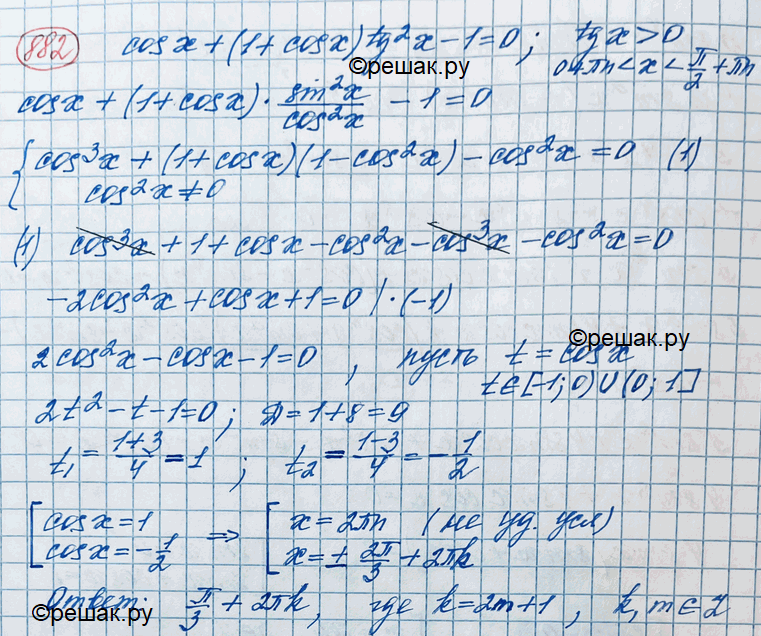 882 cos x + (1 + cos x) tg²x - 1 = 0 ; tg x > 0
©решак.ру 0+πn < x < π/2 + πn
cos x + (1 + cos x) · sin²x/cos²x - 1 = 0
{ cos³x + (1 + cos x)(1 - cos²x) - cos²x = 0 (1)
cos²x ≠ 0
(1) cos³x + 1 + cos x - cos²x - cos³x - cos²x = 0
-2cos²x + cos x + 1 = 0 | · (-1)
©решак.ру
2cos²x - cos x - 1 = 0 , пусть t = cos x
t ∈ [-1; 0) ∪ (0; 1]
2t² - t - 1 = 0 ; D = 1 + 8 = 9
t₁ = (1+3)/4 = 1 ; t₂ = (1-3)/4 = -1/2
[ cos x = 1 ⇒ [ x = 2πn (не уд. усл)
cos x = -1/2 x = ± 2π/3 + 2πk
Ответ: π/3 + 2πk, где k = 2m+1 , k, m ∈ Z
©решак.ру